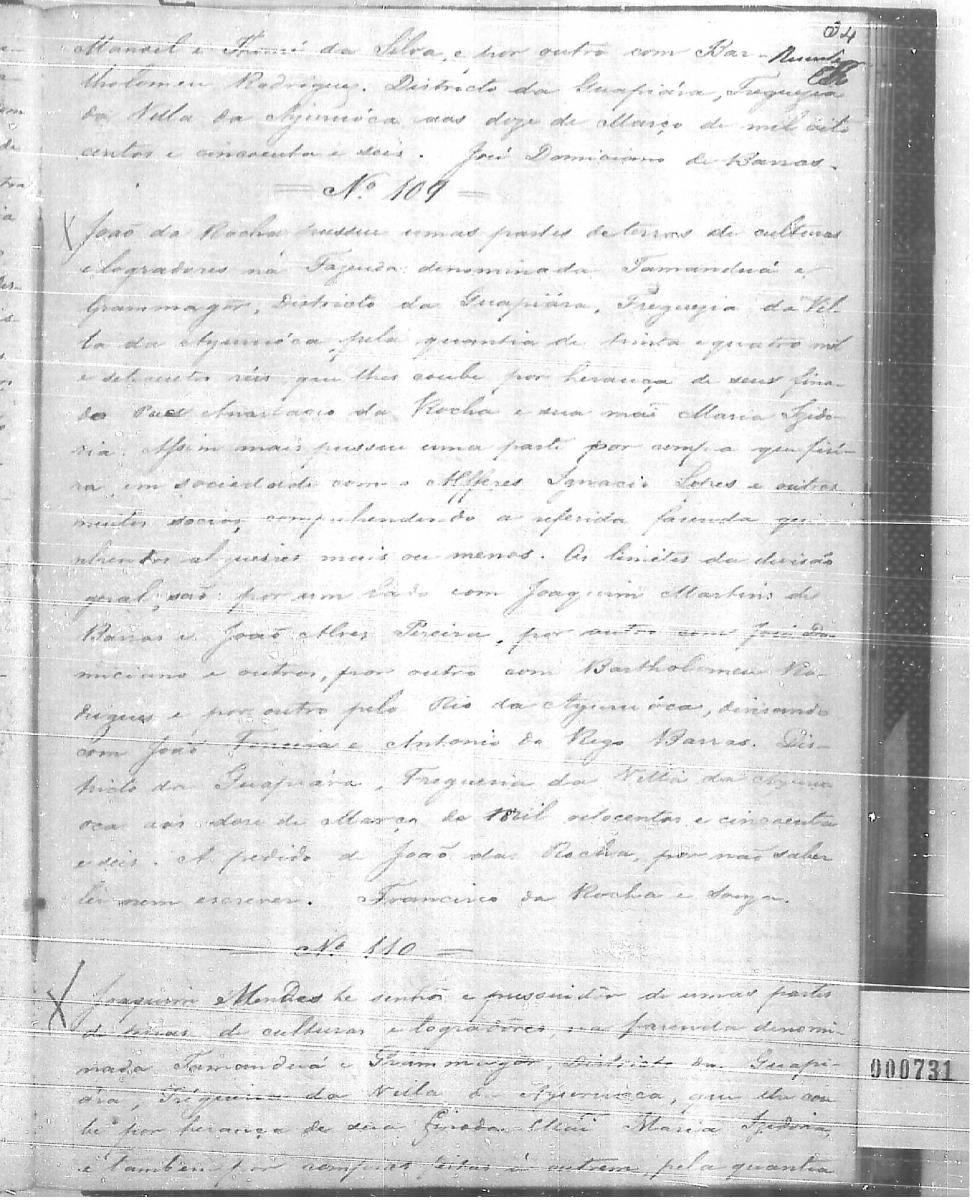 34
Manoel e Thomé da Silva, e por outro com Bar-
tholomeu Rodrigues. Districto da Guapiára, Freguezia
da Villa da Ayuruóca aos doze de Março de mil oito
centos e cincoenta e seis. José Domiciano de Barros.
Nº 109
João da Rocha possue umas partes de terras de culturas
e logradores na Fazenda denominada Tamanduá e
Grammagôr, Districto da Guapiára, Freguezia da Vil-
la da Ayuruóca pela quantia de trinta e quatro mil
e setecentos réis, que lhes coube por herança de seus fina-
do Paes Anastacio da Rocha e sua mãe Maria Izido-
ria. Assim mais possue uma parte por compra que fi
ra, em sociedade com o Alferes Ignacio e outros
muitos socios, comprehendendo a referida fazenda qui
nhentos alqueires mais ou menos. Os limites da divisão
geral, são: por um lado com Joaquim Martins de
Barros e João Alves Pereira, por outro com José Do-
miciano e outros, por outro com Bartholomeu Ro-
drigues e por outro pelo Rio da Ayuruóca, divisando
com João Ferreira e Antonio do Rego Barros. Dis-
tricto da Guapiára, Freguezia da Villa da Ayuru
oca aos doze de Março de Mil oitocentos e cincoenta
e seis. A pedido de João da Rocha, por não saber
ler nem escrever. Francisco da Rocha e Souza.
Nº 110
Joaquim Mendes he senhor e possuidor de umas partes
de terras de culturas e logradôres, na fazenda denomi-
nada Tamanduá e Grammagôr, Districto da Guapi-
ára, Freguezia da Villa da Ayuruóca, que lhe cou
be por herança de sua finada Mãi Maria Izidoria,
e tambem por compras feitas á outrem pela quantia
000731